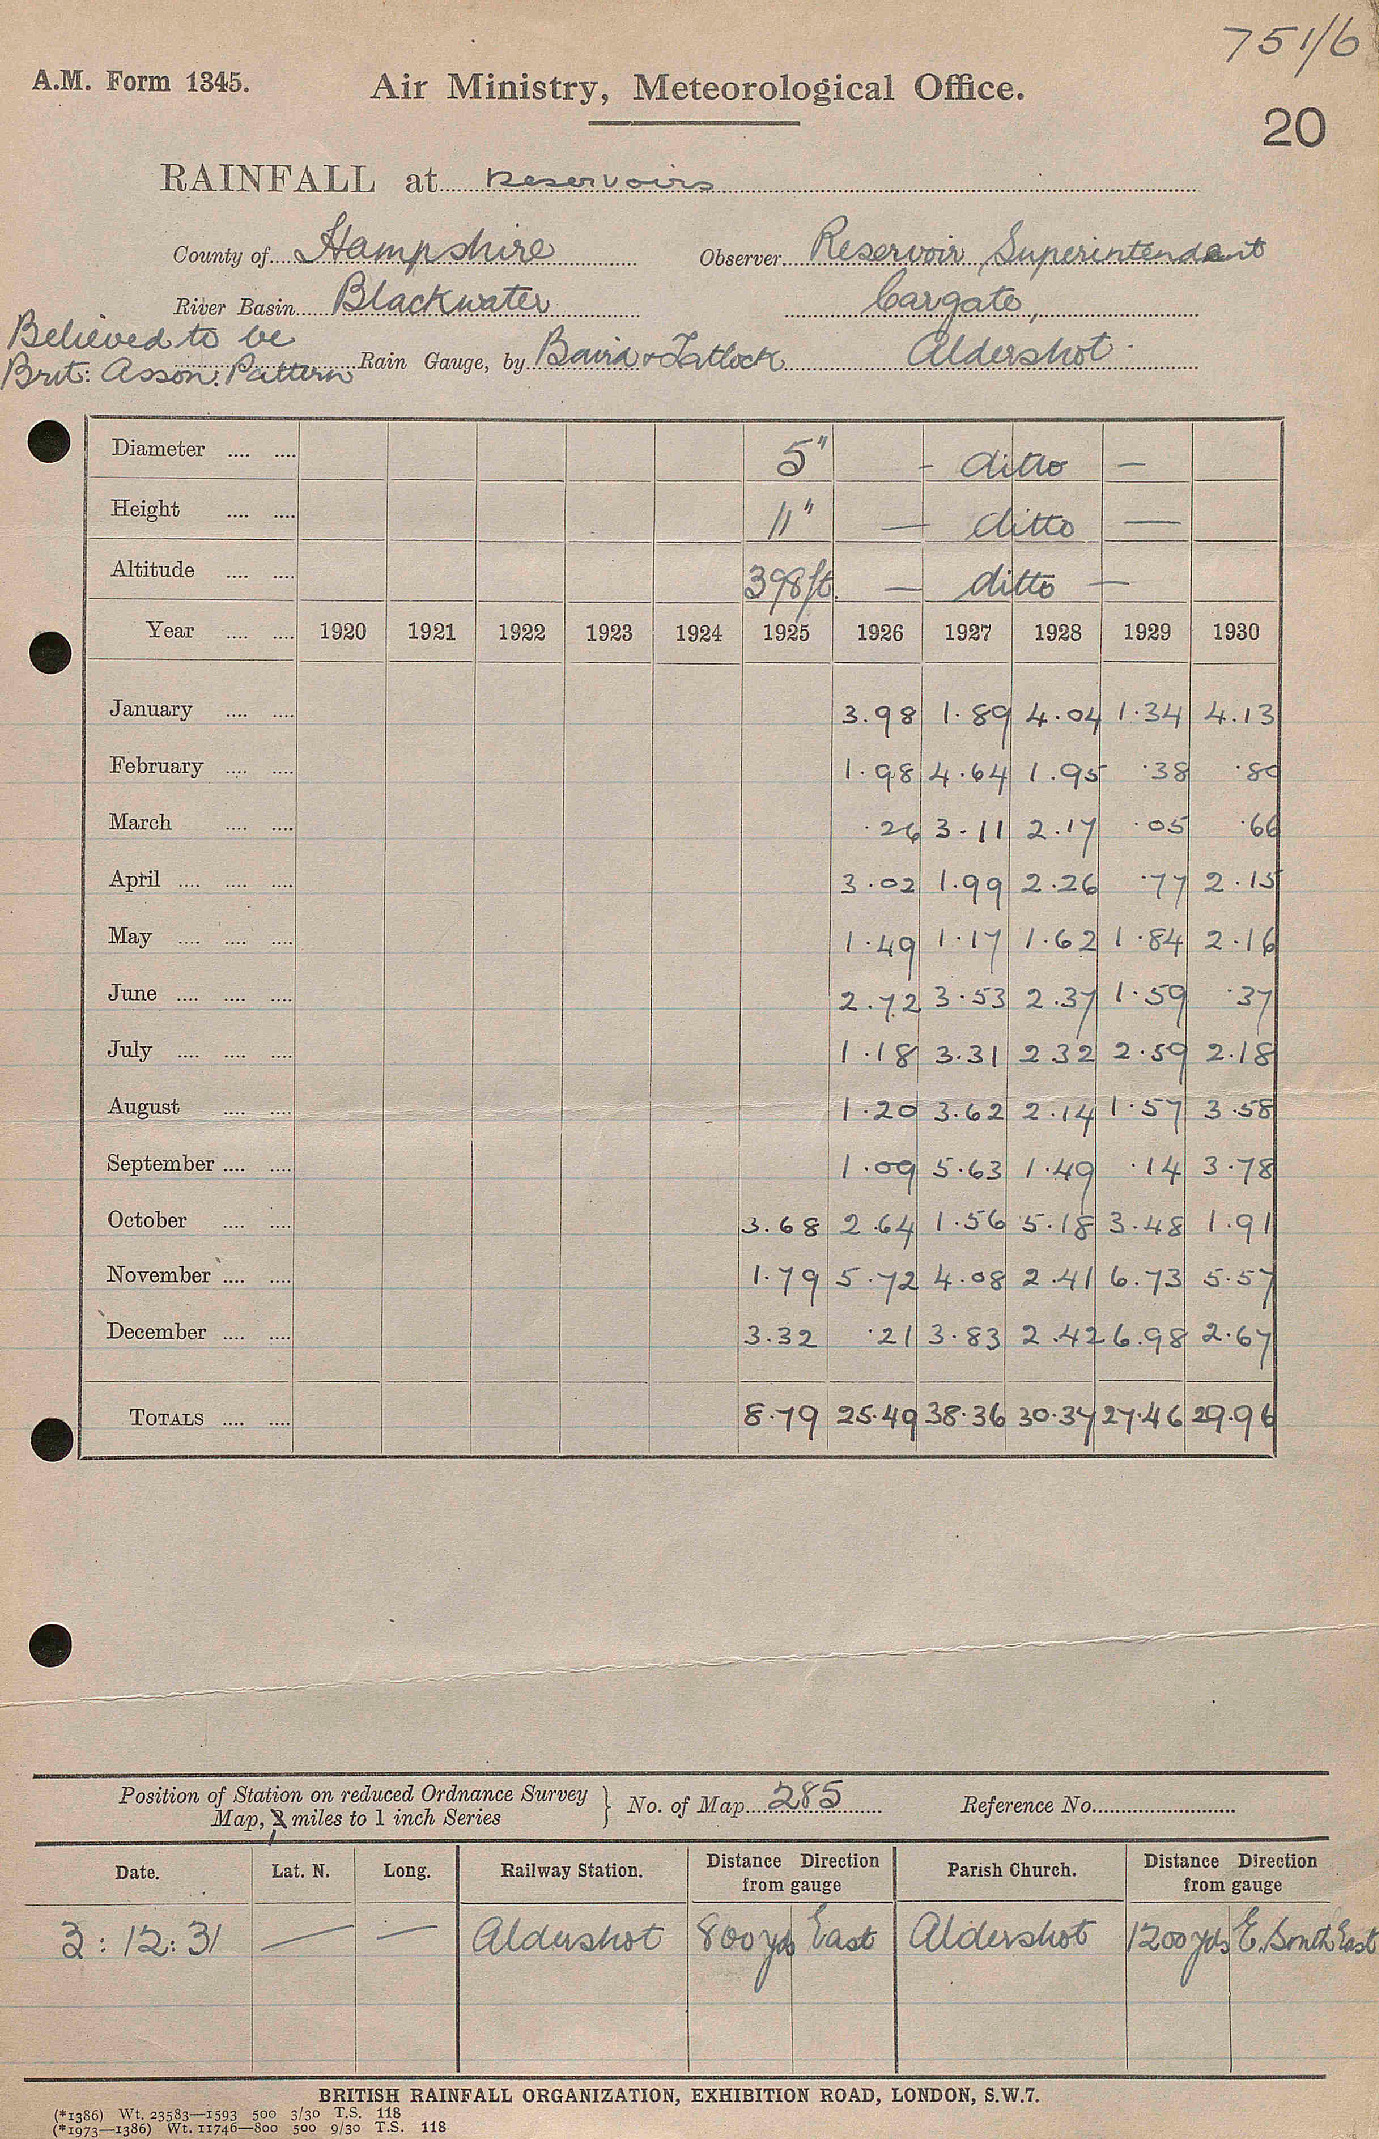 751/6
A.M. Form 1345. Air Ministry, Meteorological Office.
20
RAINFALL at Reservoirs
County of Hampshire Observer Reservoir Superintendent
River Basin Blackwater Cargate,
Believed to be
Brit: Asson: Pattern Rain Gauge, by Baird & Tatlock Aldershot.
Diameter .... .... 5" - ditto -
Height .... .... 11" - ditto -
Altitude .... .... 398ft. - ditto -
Year .... .... 1920 1921 1922 1923 1924 1925 1926 1927 1928 1929 1930
January .... .... 3.98 1.89 4.04 1.34 4.13
February .... .... 1.98 4.64 1.95 .38 .80
March .... .... .26 3.11 2.17 .05 .66
April .... .... .... 3.02 1.99 2.26 .77 2.15
May .... .... .... 1.49 1.17 1.62 1.84 2.16
June .... .... .... 2.72 3.53 2.37 1.59 .37
July .... .... .... 1.18 3.31 2.32 2.59 2.18
August .... .... 1.20 3.62 2.14 1.57 3.58
September .... .... 1.09 5.63 1.49 .14 3.78
October .... .... 3.68 2.64 1.56 5.18 3.48 1.91
November .... .... 1.79 5.72 4.08 2.41 6.73 5.57
December .... .... 3.32 .21 3.83 2.42 6.98 2.67
TOTALS .... .... 8.79 25.49 38.36 30.37 27.46 29.96
Position of Station on reduced Ordnance Survey
Map, 2 miles to 1 inch Series } No. of Map 285 Reference No.
Date. Lat. N. Long. Railway Station. Distance Direction from gauge Parish Church. Distance Direction from gauge
3:12:31 — — Aldershot 800 yds East Aldershot 1200 yds E. South East
BRITISH RAINFALL ORGANIZATION, EXHIBITION ROAD, LONDON, S.W.7.
(*1386) Wt. 23583—1593 500 3/30 T.S. 118
(*1973—1386) Wt. 11746—800 500 9/30 T.S. 118